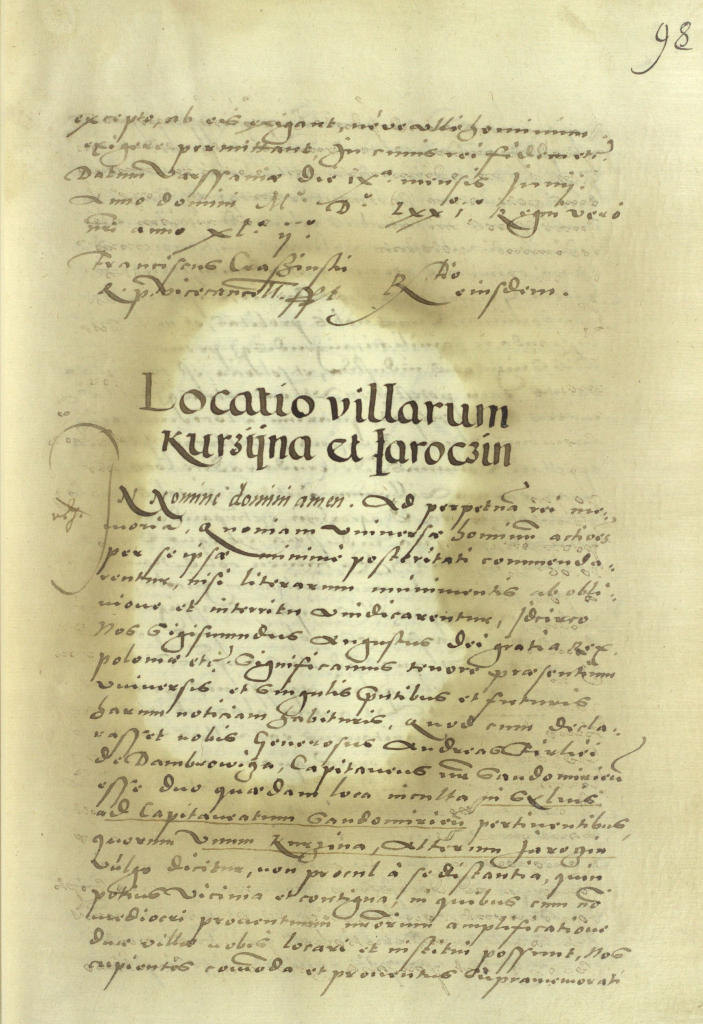 98
excepto, ab eis exigant, neve ullis hominum
exigere permittant, In cuius rei fidem etc.
Datum Varssaviæ die ixª mensis Junij.
Anno domini M° D° Lxx i° Regni vero
nri anno xl° ij°
Franciscus Crasinski
R. p. vicecancell. sspt R tio eiusdem.
Locatio villarum
Kurzÿna et Jaroczin
IN Nomine domini amen. Ad perpetuā rei me-
moriā, Quoniam Universæ hominū actiões
per se ipsæ minimè posteritati commenda-
rentur, nisi literarum munimentis ab obli-
vione et interitu vindicarentur, Idcirco
Nos Sigismundus Augustus dei gratia Rex
poloniæ etc. Significamus tenore præsentium
Universis et singulis pntibus et futuris
harum noticiam habituris, Quod cum decla-
rasset nobis Generosus Andreas Firlei
de Dambrowiza, Capitaneus nr Sandomirieñ
esse duo quædam loca inculta in Sylvis
ad Capitaneatum Sandomirieñ pertinentibus,
quorum Unum Kurzina, Alterum Jarozin
vulgo dicitur, non procul à se distantia, quin
potius vicinia et contigua, in quibus cum nõ
mediocri proventuum nrorum amplificatione
duæ villæ nobis locari et institui possunt, Nos
cupientes comoda et proventus supramemorati